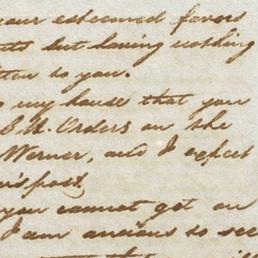 your esteemed favors
but having nothing
to you.
my house that you
Orders on the
Werner, and I expect
post
you cannot get on
I am anxious to see
that